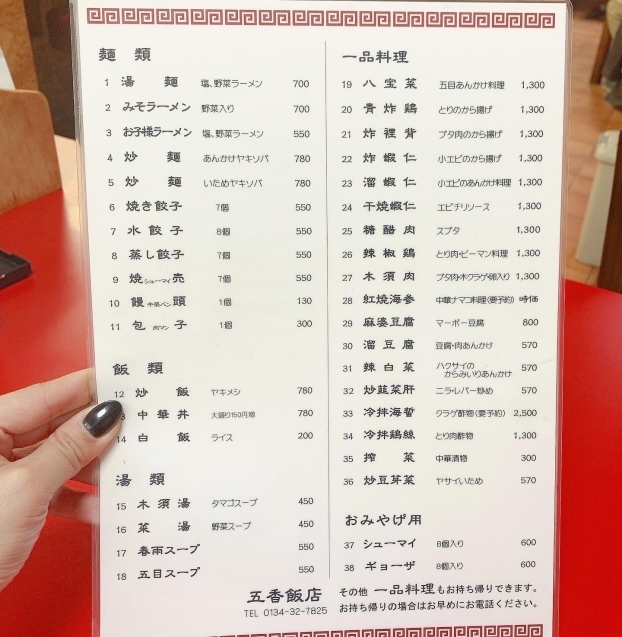 麺 類
1 湯 麺 塩、野菜ラーメン 700
2 みそラーメン 野菜入り 700
3 お子様ラーメン 塩、野菜ラーメン 550
4 炒 麺 あんかけヤキソバ 780
5 炒 麺 いためヤキソバ 780
6 焼き餃子 7個 550
7 水 餃 子 8個 550
8 蒸し餃子 7個 550
9 焼シューマイ売 7個 550
10 饅中華パン頭 1個 130
11 包肉マン子 1個 300
飯 類
12 炒 飯 ヤキメシ 780
中 華 丼 大盛り150円増 780
14 白 飯 ライス 200
湯 類
15 木 須 湯 タマゴスープ 450
16 菜 湯 野菜スープ 450
17 春雨スープ 550
18 五目スープ 550
一品料理
19 八 宝 菜 五目あんかけ料理 1,300
20 青 炸 鶏 とりのから揚げ 1,300
21 炸 裡 背 ブタ肉のから揚げ 1,300
22 炸 蝦 仁 小エビのから揚げ 1,300
23 溜 蝦 仁 小エビのあんかけ料理 1,300
24 干焼蝦仁 エビチリソース 1,300
25 糖 醋 肉 スブタ 1,300
26 辣 椒 鶏 とり肉・ピーマン料理 1,300
27 木 須 肉 ブタ肉・木クラゲ・卵入り 1,300
28 紅焼海参 中華ナマコ料理(要予約) 時価
29 麻婆豆腐 マーボー豆腐 800
30 溜 豆 腐 豆腐・肉あんかけ 570
31 辣 白 菜 ハクサイの
からみいりあんかけ 570
32 炒韮菜肝 ニラ・レバー炒め 570
33 冷拌海蜇 クラゲ酢物(要予約) 2,500
34 冷拌鶏絲 とり肉酢物 1,300
35 搾 菜 中華漬物 300
36 炒豆芽菜 ヤサイいため 570
おみやげ用
37 シューマイ 8個入り 600
38 ギョーザ 8個入り 600
五香飯店 その他 一品料理もお持ち帰りできます。
TEL 0134-32-7825 お持ち帰りの場合はお早めにお電話ください。